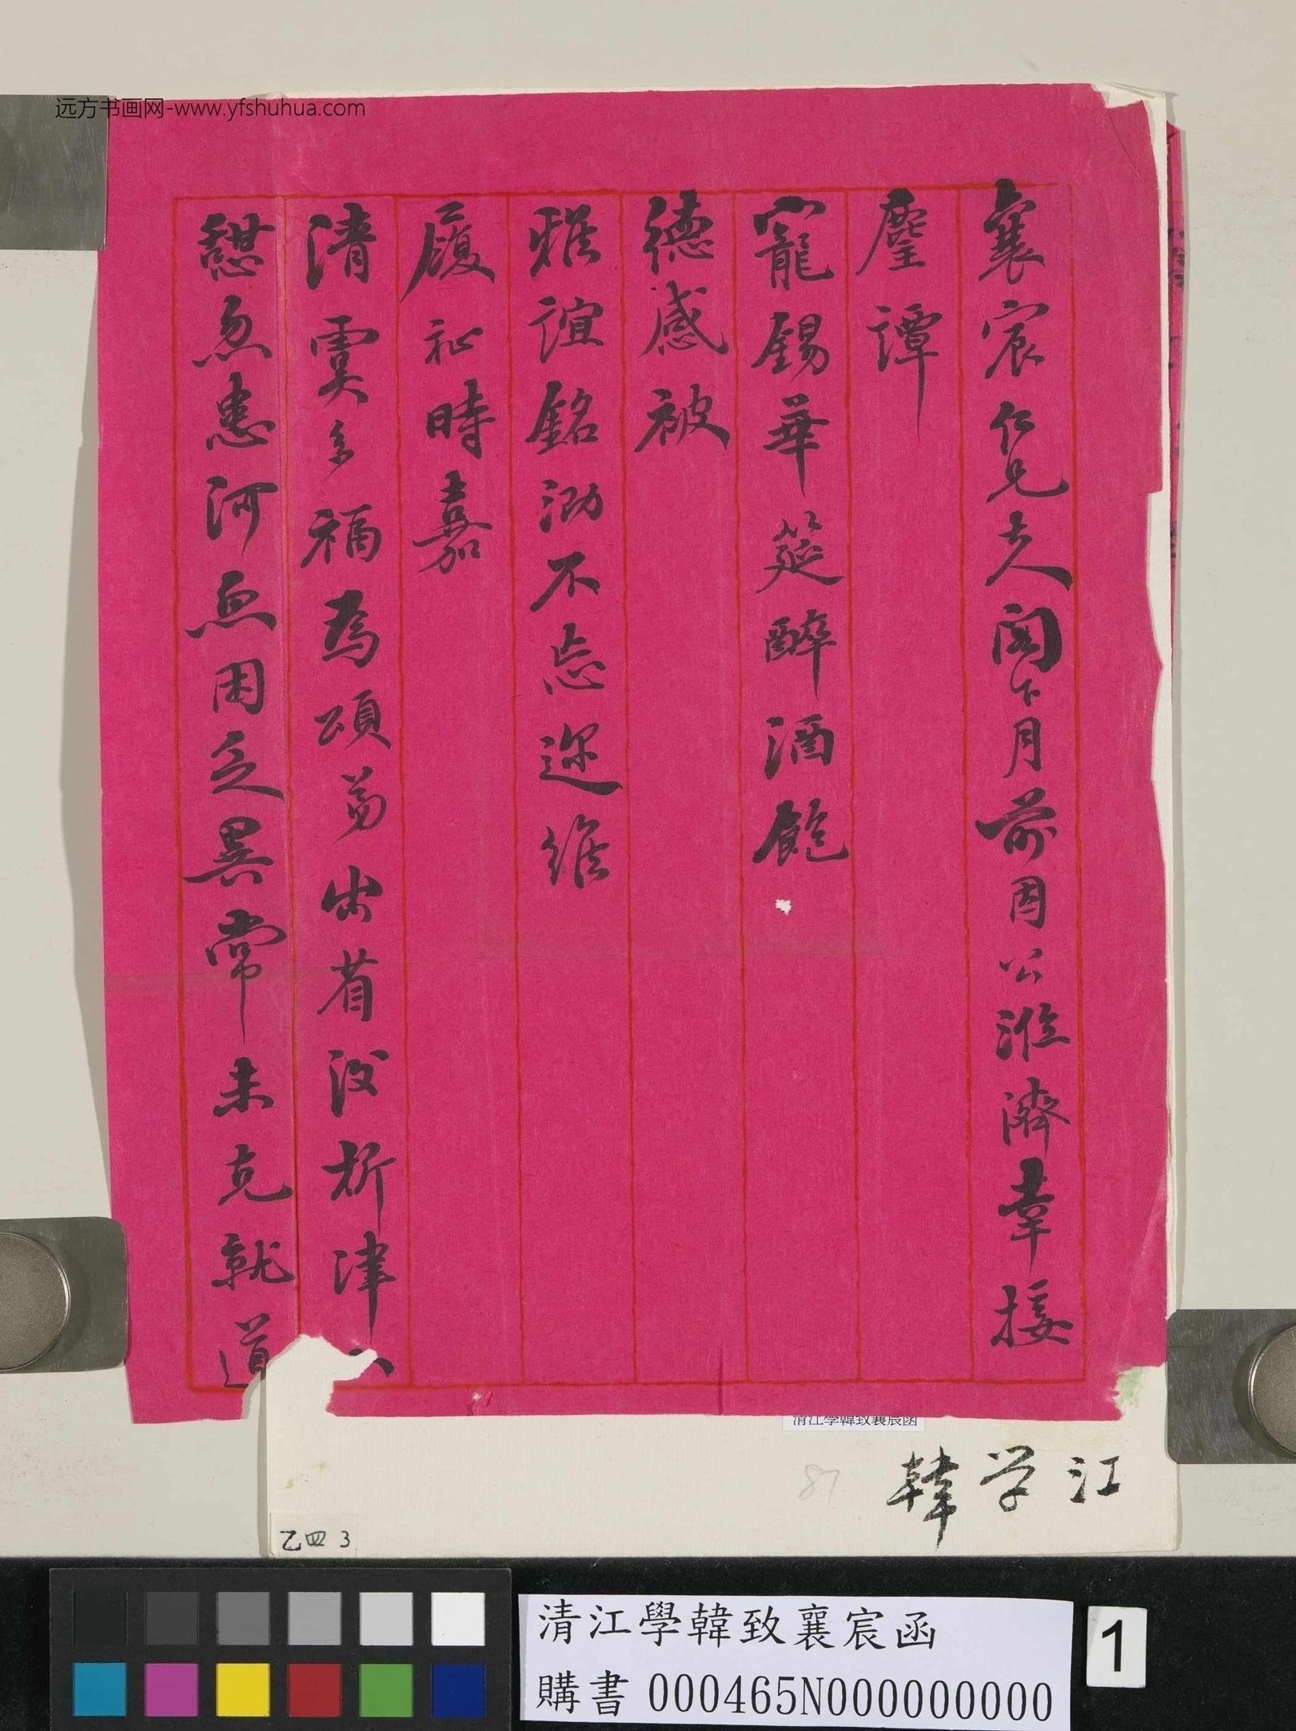 远方书画网-www.yfshuhua.com
襄宸仁兄大人阁下月前因公淮濟幸接
麈譚
寵錫華筵醉酒飽
德感被
雅誼銘泐不忘邇維
履祉時嘉
清
多福為頌弟出省後析津
忽患河魚困乏異常未克就道
清江學韓致襄宸函
江学韓
87
乙四 3
清江學韓致襄宸函
購書 000465N000000000
1